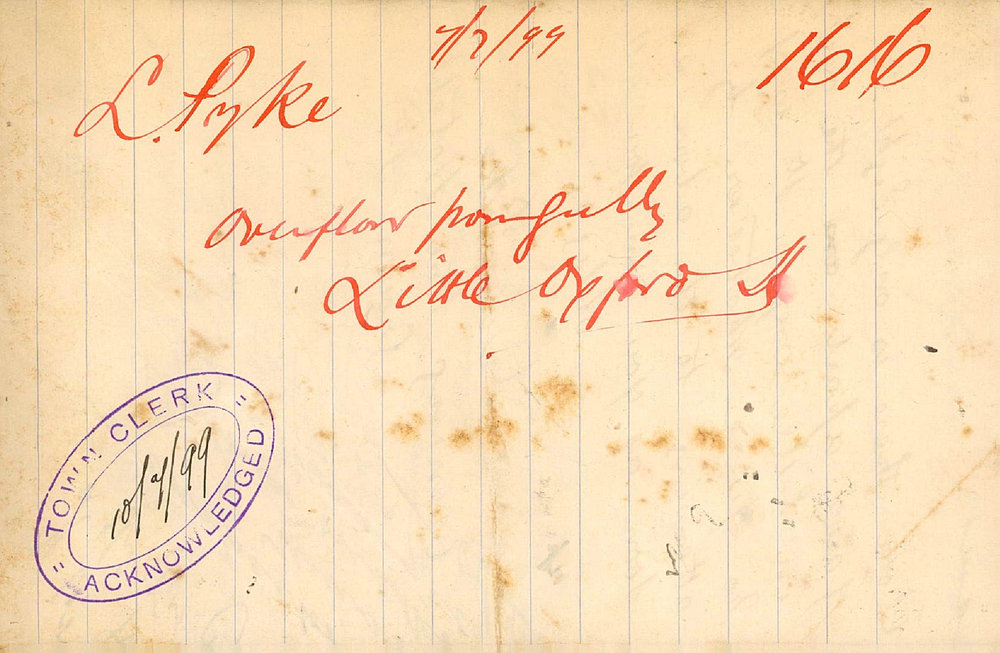 7/7/99
1616
L. Pyke
Overflow from gully
Little Oxford St
TOWN CLERK
10/7/99
ACKNOWLEDGED